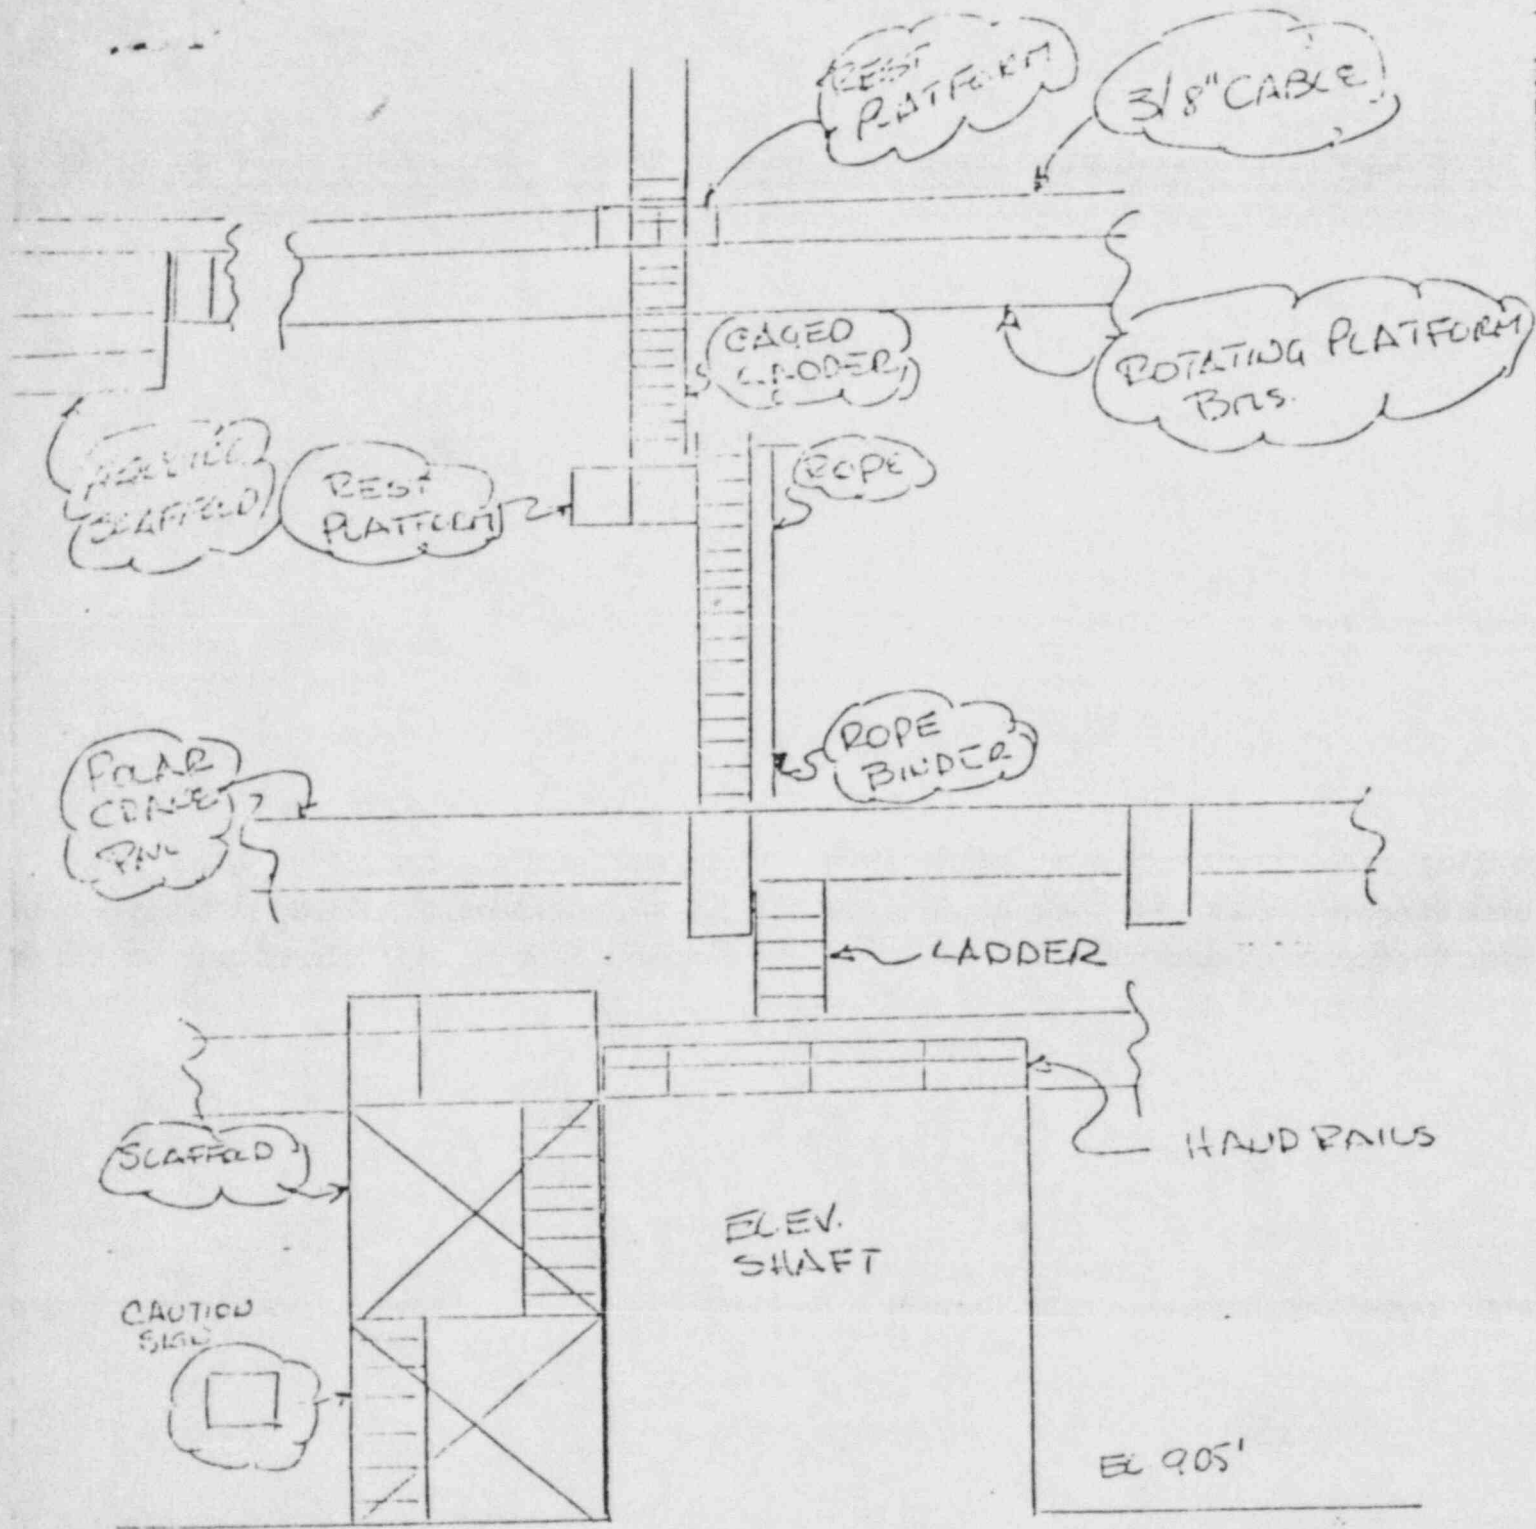 REST
PLATFORM
3/8" CABLE
CAGED
LADDER
ROTATING PLATFORM
BMS.
SCAFFOLD
REST
PLATFORM
ROPE
ROPE
BINDER
POLAR
CRANE
RAIL
LADDER
HANDRAILS
SCAFFOLD
ELEV.
SHAFT
CAUTION
SIGN
EL 905'